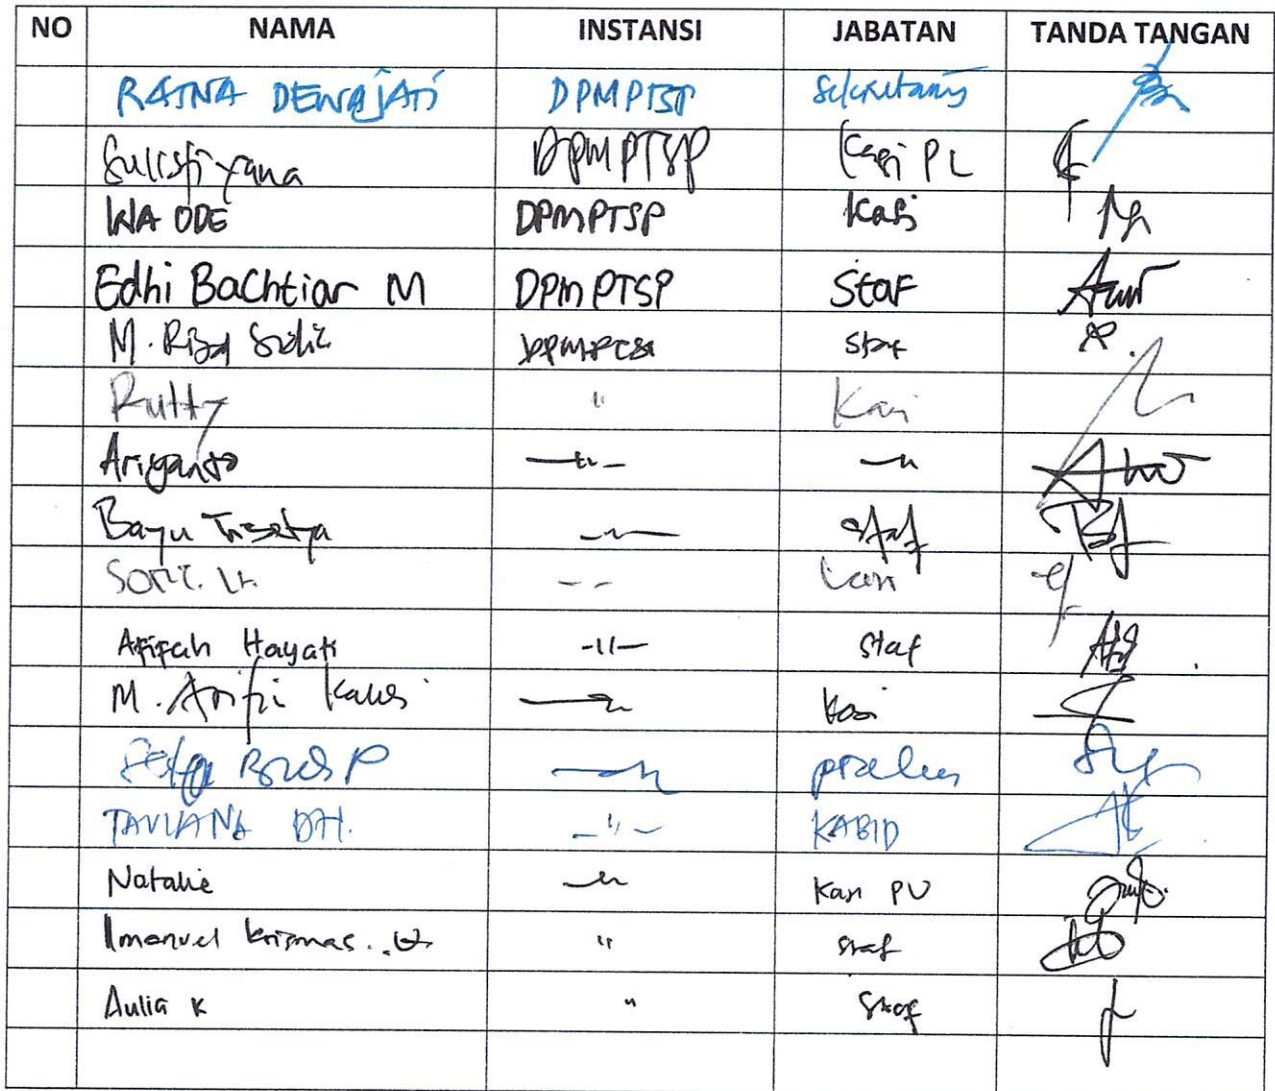 NO NAMA INSTANSI JABATAN TANDA TANGAN
RATNA DEWAJATI DPMPTSP Sekretaris
Sulistiyana DPMPTSP Kasi PL
WA ODE DPMPTSP Kasi
Edhi Bachtiar M DPMPTSP Staf
M. Riza DPMPTSP Staf
Rutty " Kasi
Ariyanto -"- "
Bayu Trisetya -"- staf
- -
Afifah Hayati -"- Staf
M. Arifin -"- Kasi
P -"-
TAVIANA DH. -"- KABID
Natalie -"- Kasi PU
Imanuel Krismas. " staf
Aulia K " Staf